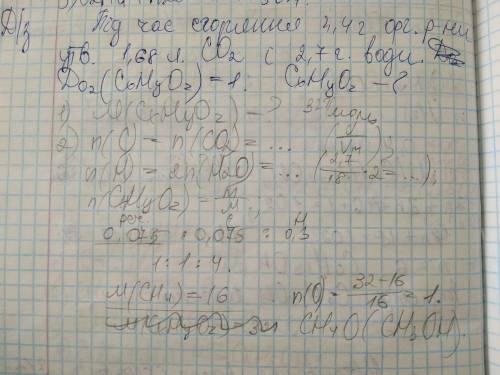 Д/з Під час згоряння 2,4 г орг. р-ни
утв. 1,68 л. CO₂ і 2,7 г. води.
D O₂ (CₓHᵧO_z) = 1. CₓHᵧO_z - ?
1) M(CₓHᵧO_z) = ? 32 г/моль
2) n(C) = n(CO₂) = ... (V/Vm);
n(H) = 2n(H₂O) = ... (2,7/18 · 2 = ...);
n(CₓHᵧO_z) = m/M;
реч C H
0,075 : 0,075 : 0,3
1 : 1 : 4.
M(CH₄) = 16 n(O) = 32-16/16 = 1.
CH₄O (CH₃OH).